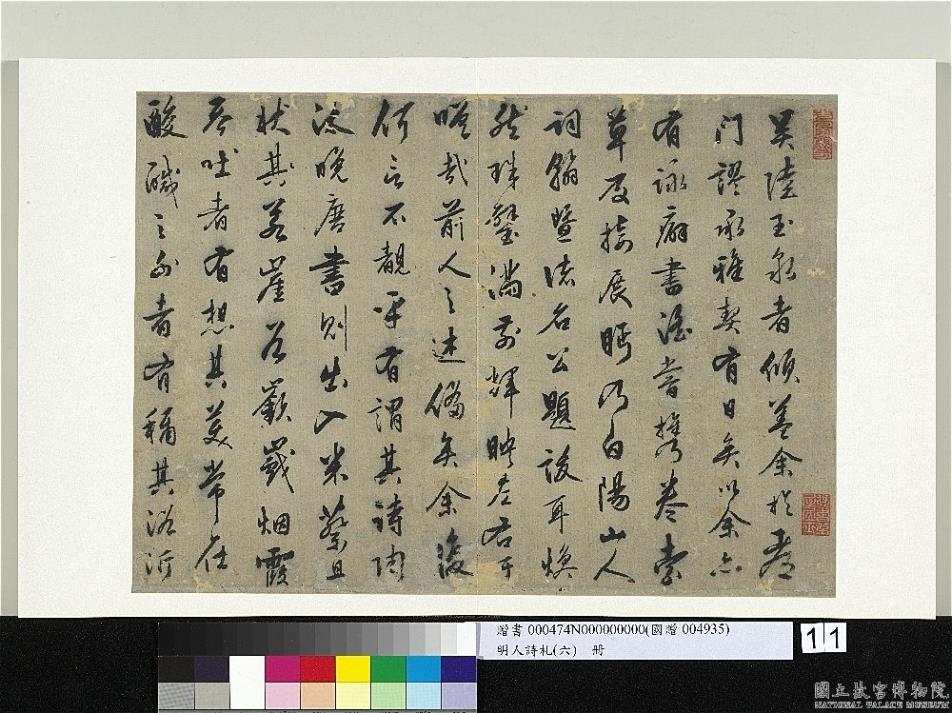 吳陸玉泉者傾蓋余於都
門謬承雅契有日矣以余亦
有詠癖書滛嘗携卷索
草及接展眎乃白陽山人
詞翰暨諸名公題詠耳煥
然珠璧滿前輝映左右于
嗟哉前人之述俻矣余復
何言不覩乎有謂其詩陶
流晚唐書則出入米蔡且
狀其若崖谷巖巒烟霞
吞吐者有想其美常在
酸醎之外者有稱其沿沂
贈書 000474N000000000(國贈 004935)
明人詩札(六) 冊
11
國立故宮博物院
NATIONAL PALACE MUSEUM